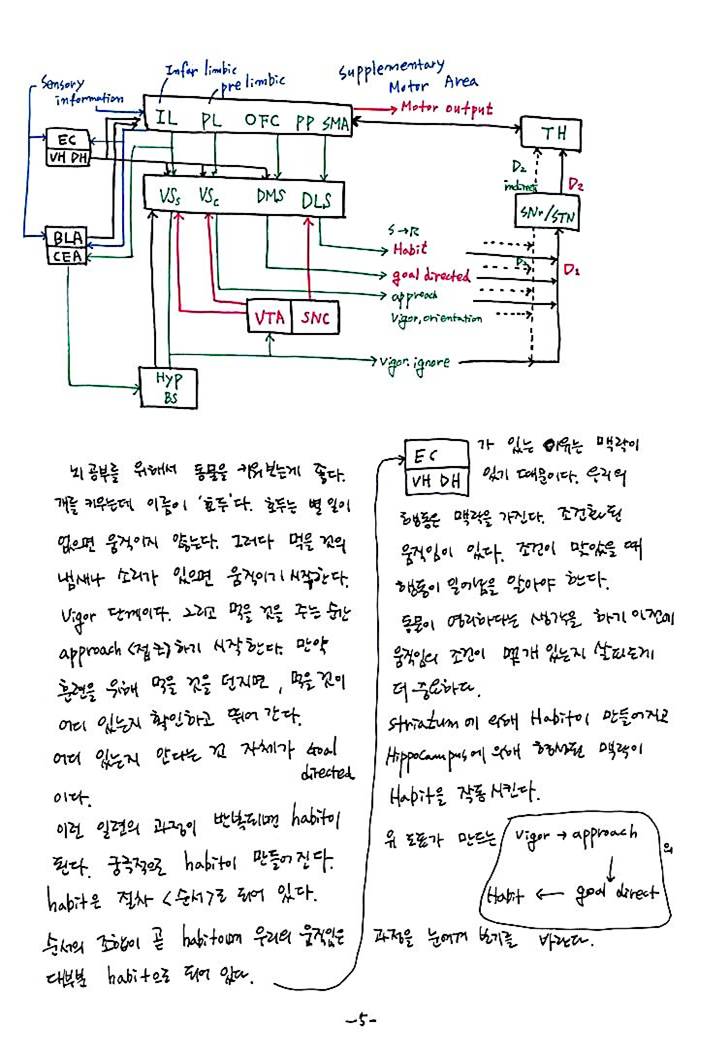 Infar limbic
pre limbic
Supplementary
Motor Area
Sensory
information
Motor output
IL PL OFC PP SMA
TH
EC
VH DH
D2
indirect
D2
VSs VSc DMS DLS
SNr/STN
BLA
CEA
S→R
Habit
goal directed
D2
D1
approach
Vigor, orientation
VTA SNC
Vigor. ignore
HYP
BS
뇌 공부를 위해서 동물을 키워보는게 좋다.
개를 키우는데 이름이 '호두'다. 호두는 별 일이
없으면 움직이지 않는다. 그러다 먹을 것의
냄새나 소리가 있으면 움직이기 시작한다.
Vigor 단계이다. 그리고 먹을 것을 주는 순간
approach <접근>하기 시작한다. 만약
훈련을 위해 먹을 것을 던지면, 먹을 것이
어디 있는지 확인하고 뛰어 간다.
어디 있는지 안다는 것 자체가 Goal
directed
이다.
이런 일련의 과정이 반복되면 habit이
된다. 궁극적으로 habit이 만들어 진다.
habit은 절차 <순서>로 되어 있다.
순서의 조합이 곧 habit이며 우리의 움직임은
대부분 habit으로 되어 있다.
EC
VH DH
가 있는 이유는 맥락이
있기 때문이다. 우리의
행동은 맥락을 가진다. 조건화된
움직임이 있다. 조건이 맞았을 때
행동이 일어남을 알아야 한다.
동물이 영리하다는 생각을 하기 이전에
움직임의 조건이 몇 개 있는지 살피는게
더 중요하다.
Striatum에 의해 Habit이 만들어지고
Hippocampus에 의해 형성된 맥락이
Habit을 작동시킨다.
위 도표가 만드는 Vigor → approach 의
Habit ← goal direct
과정을 눈여겨 보기를 바란다.
-5-